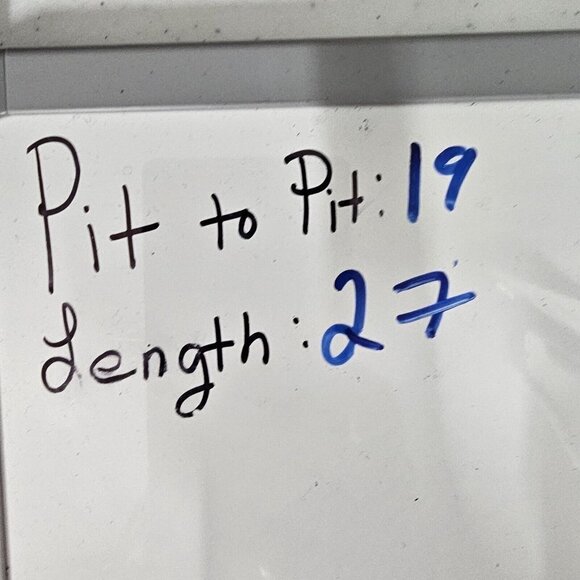 Pit to Pit: 19
Length: 27